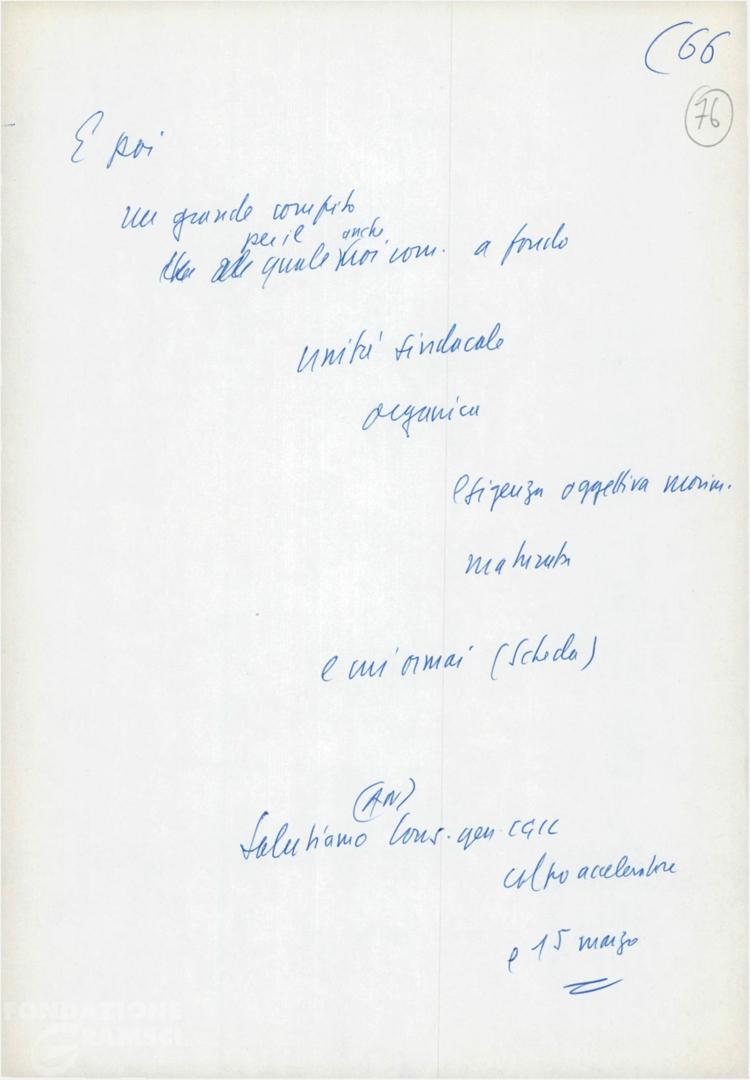 (66
76
E poi
un grande compito
per il anche
quale noi com. a fondo
unità sindacale
organica
esigenza oggettiva movim.
maturata
e cui ormai (Scheda)
(AN)
Salutiamo Cons. gen. CGIL
colpo acceleratore
e 15 marzo
FONDAZIONE
GRAMSCI